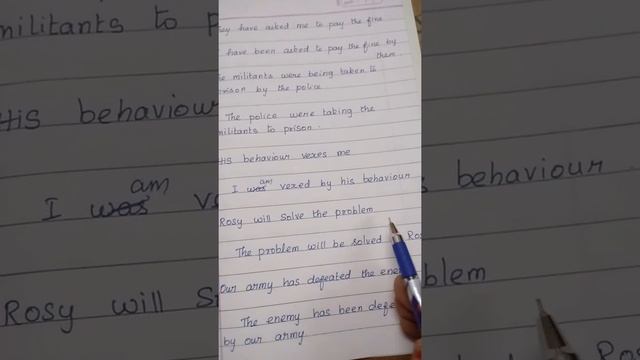 have asked me to pay the fine
have been asked to pay the fine by
them.
militants were being taken to
prison by the police
The police were taking the
militants to prison.
His behaviour vexes me
I was am vexed by his behaviour
Rosy will solve the problem
The problem will be solved
Our army has defeated the
The enemy has been
by our army.